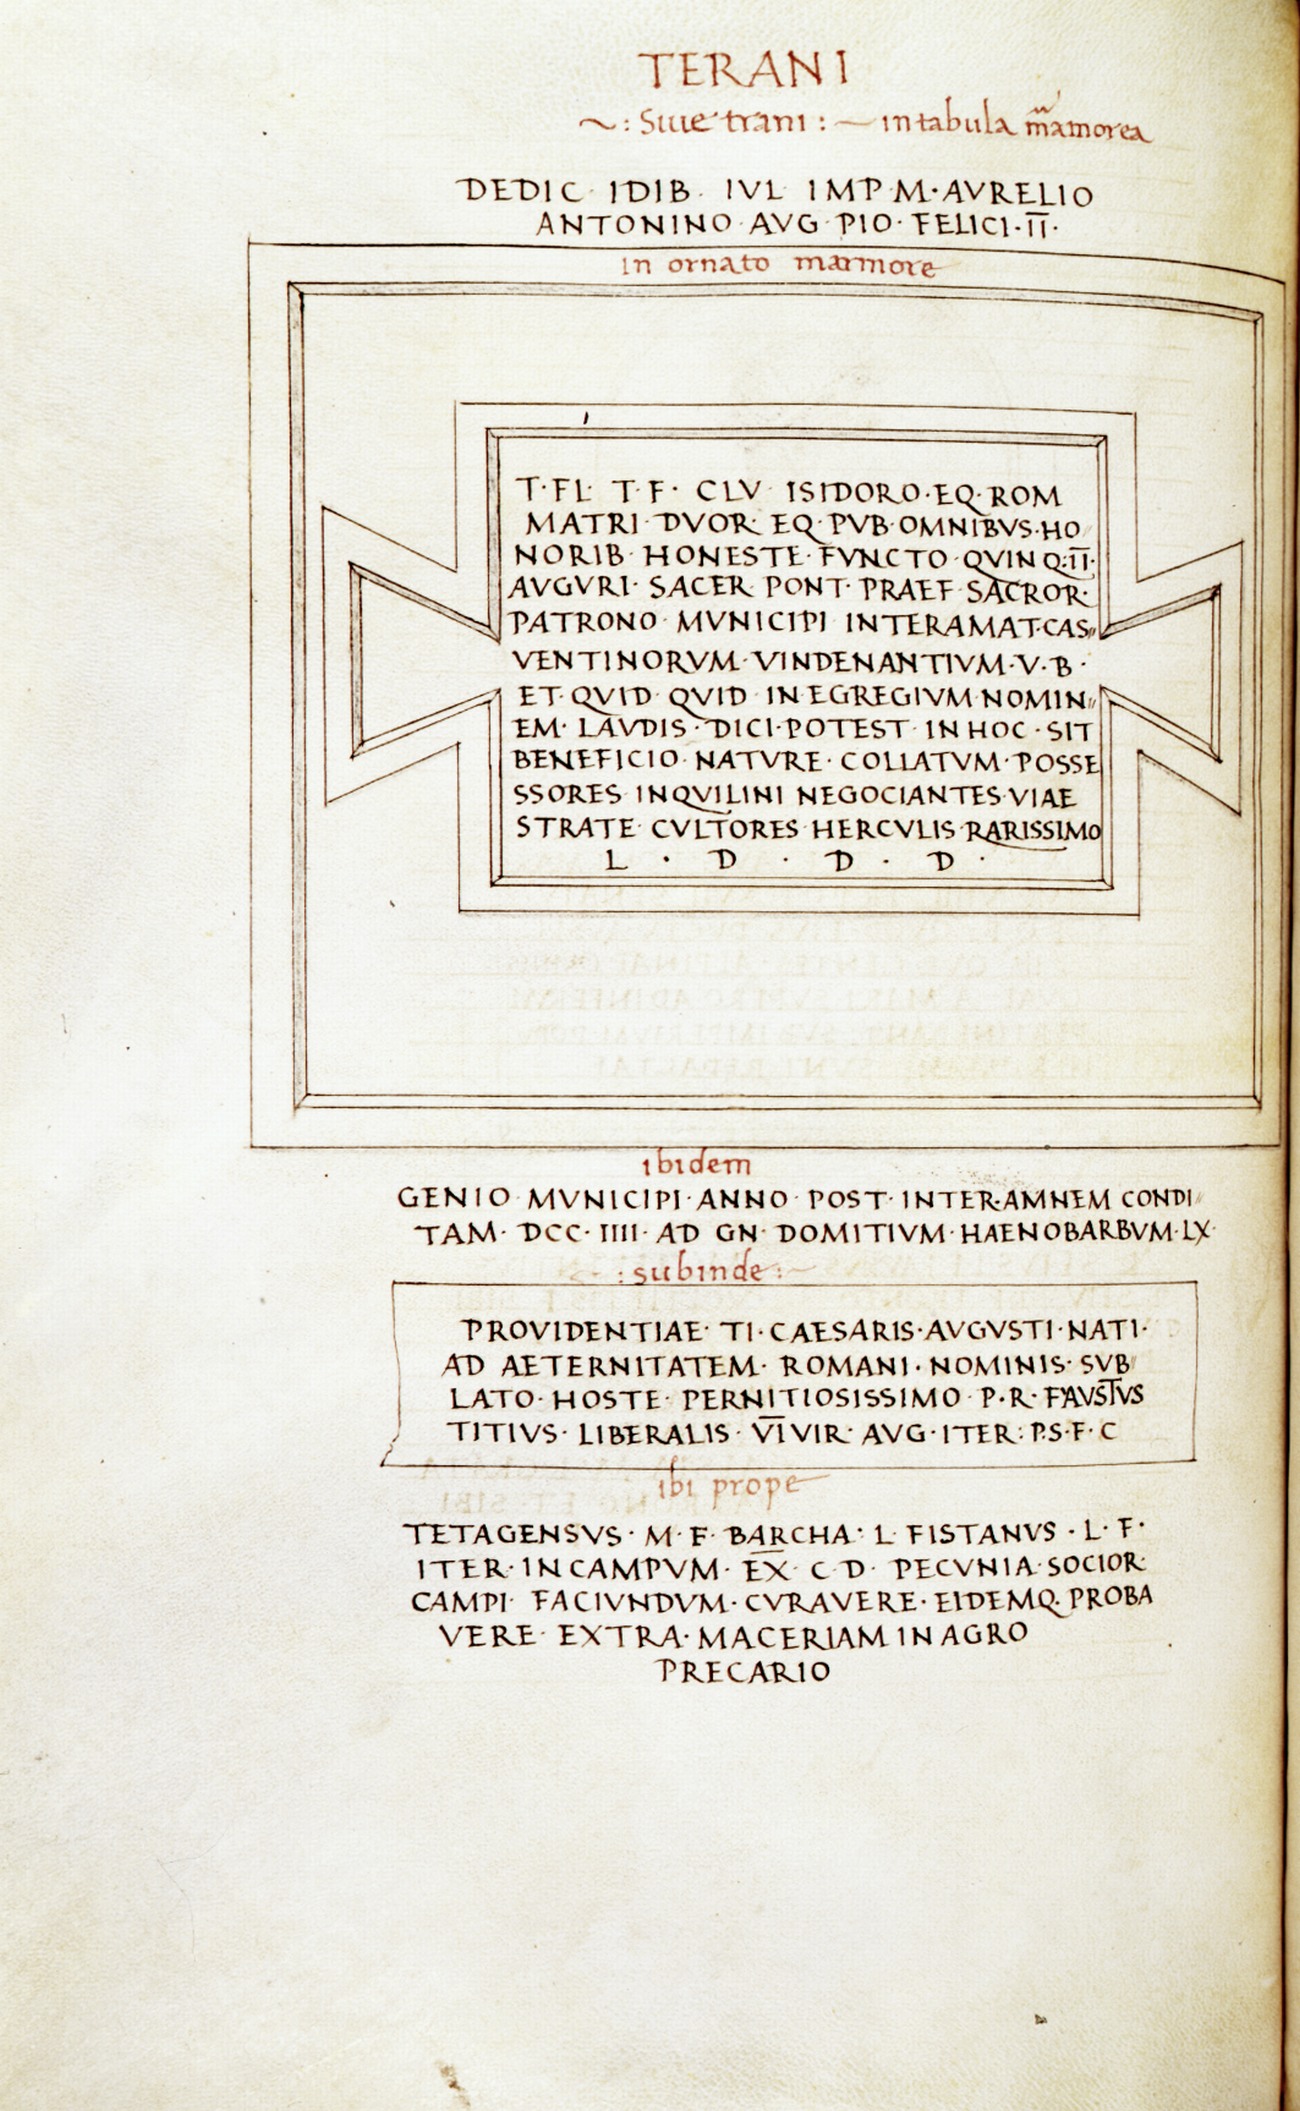 TERANI
~ : Siue trani : — in tabula mamorea
DEDIC · IDIB · IVL · IMP · M · AVRELIO
ANTONINO · AVG · PIO · FELICI · II ·
in ornato marmore
T · FL · T · F · CLV · ISIDORO · EQ · ROM
MATRI · DVOR · EQ · PVB · OMNIBVS · HO
NORIB · HONESTE · FVNCTO · QVINQ : II ·
AVGVRI · SACER · PONT · PRAEF · SACROR ·
PATRONO · MVNICIPI · INTERAMAT · CAS
VENTINORVM · VINDENANTIVM · V · B ·
ET · QVID · QVID · IN EGREGIVM · NOMIN
EM · LAVDIS · DICI · POTEST · IN HOC · SIT
BENEFICIO · NATVRE · COLLATVM · POSSE
SSORES · INQVILINI · NEGOCIANTES · VIAE
STRATE · CVLTORES · HERCVLIS · RARISSIMO
L · D · D · D ·
ibidem
GENIO · MVNICIPI · ANNO · POST · INTER · AMNEM CONDI
TAM · DCC · IIII · AD · GN · DOMITIVM · HAENOBARBVM · LX ·
· : subinde : ~
PROVIDENTIAE · TI · CAESARIS · AVGVSTI · NATI ·
AD AETERNITATEM · ROMANI · NOMINIS · SVB
LATO · HOSTE · PERNITIOSISSIMO · P · R · FAVSTVS
TITIVS · LIBERALIS · VI VIR · AVG · ITER : P.S · F · C
ibi prope
TETAGENSVS · M · F · BARCHA · L · FISTANVS · L · F ·
ITER · IN CAMPVM · EX · C · D · PECVNIA · SOCIOR
CAMPI · FACIVNDVM · CVRAVERE · EIDEMQ · PROBA
VERE · EXTRA · MACERIAM IN AGRO
PRECARIO